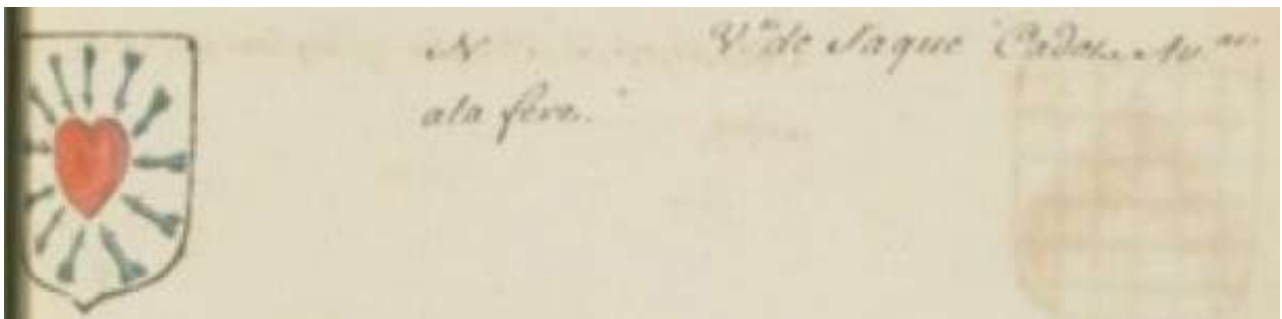 N V.e de Jaque Cadot, Av.
a la fere.